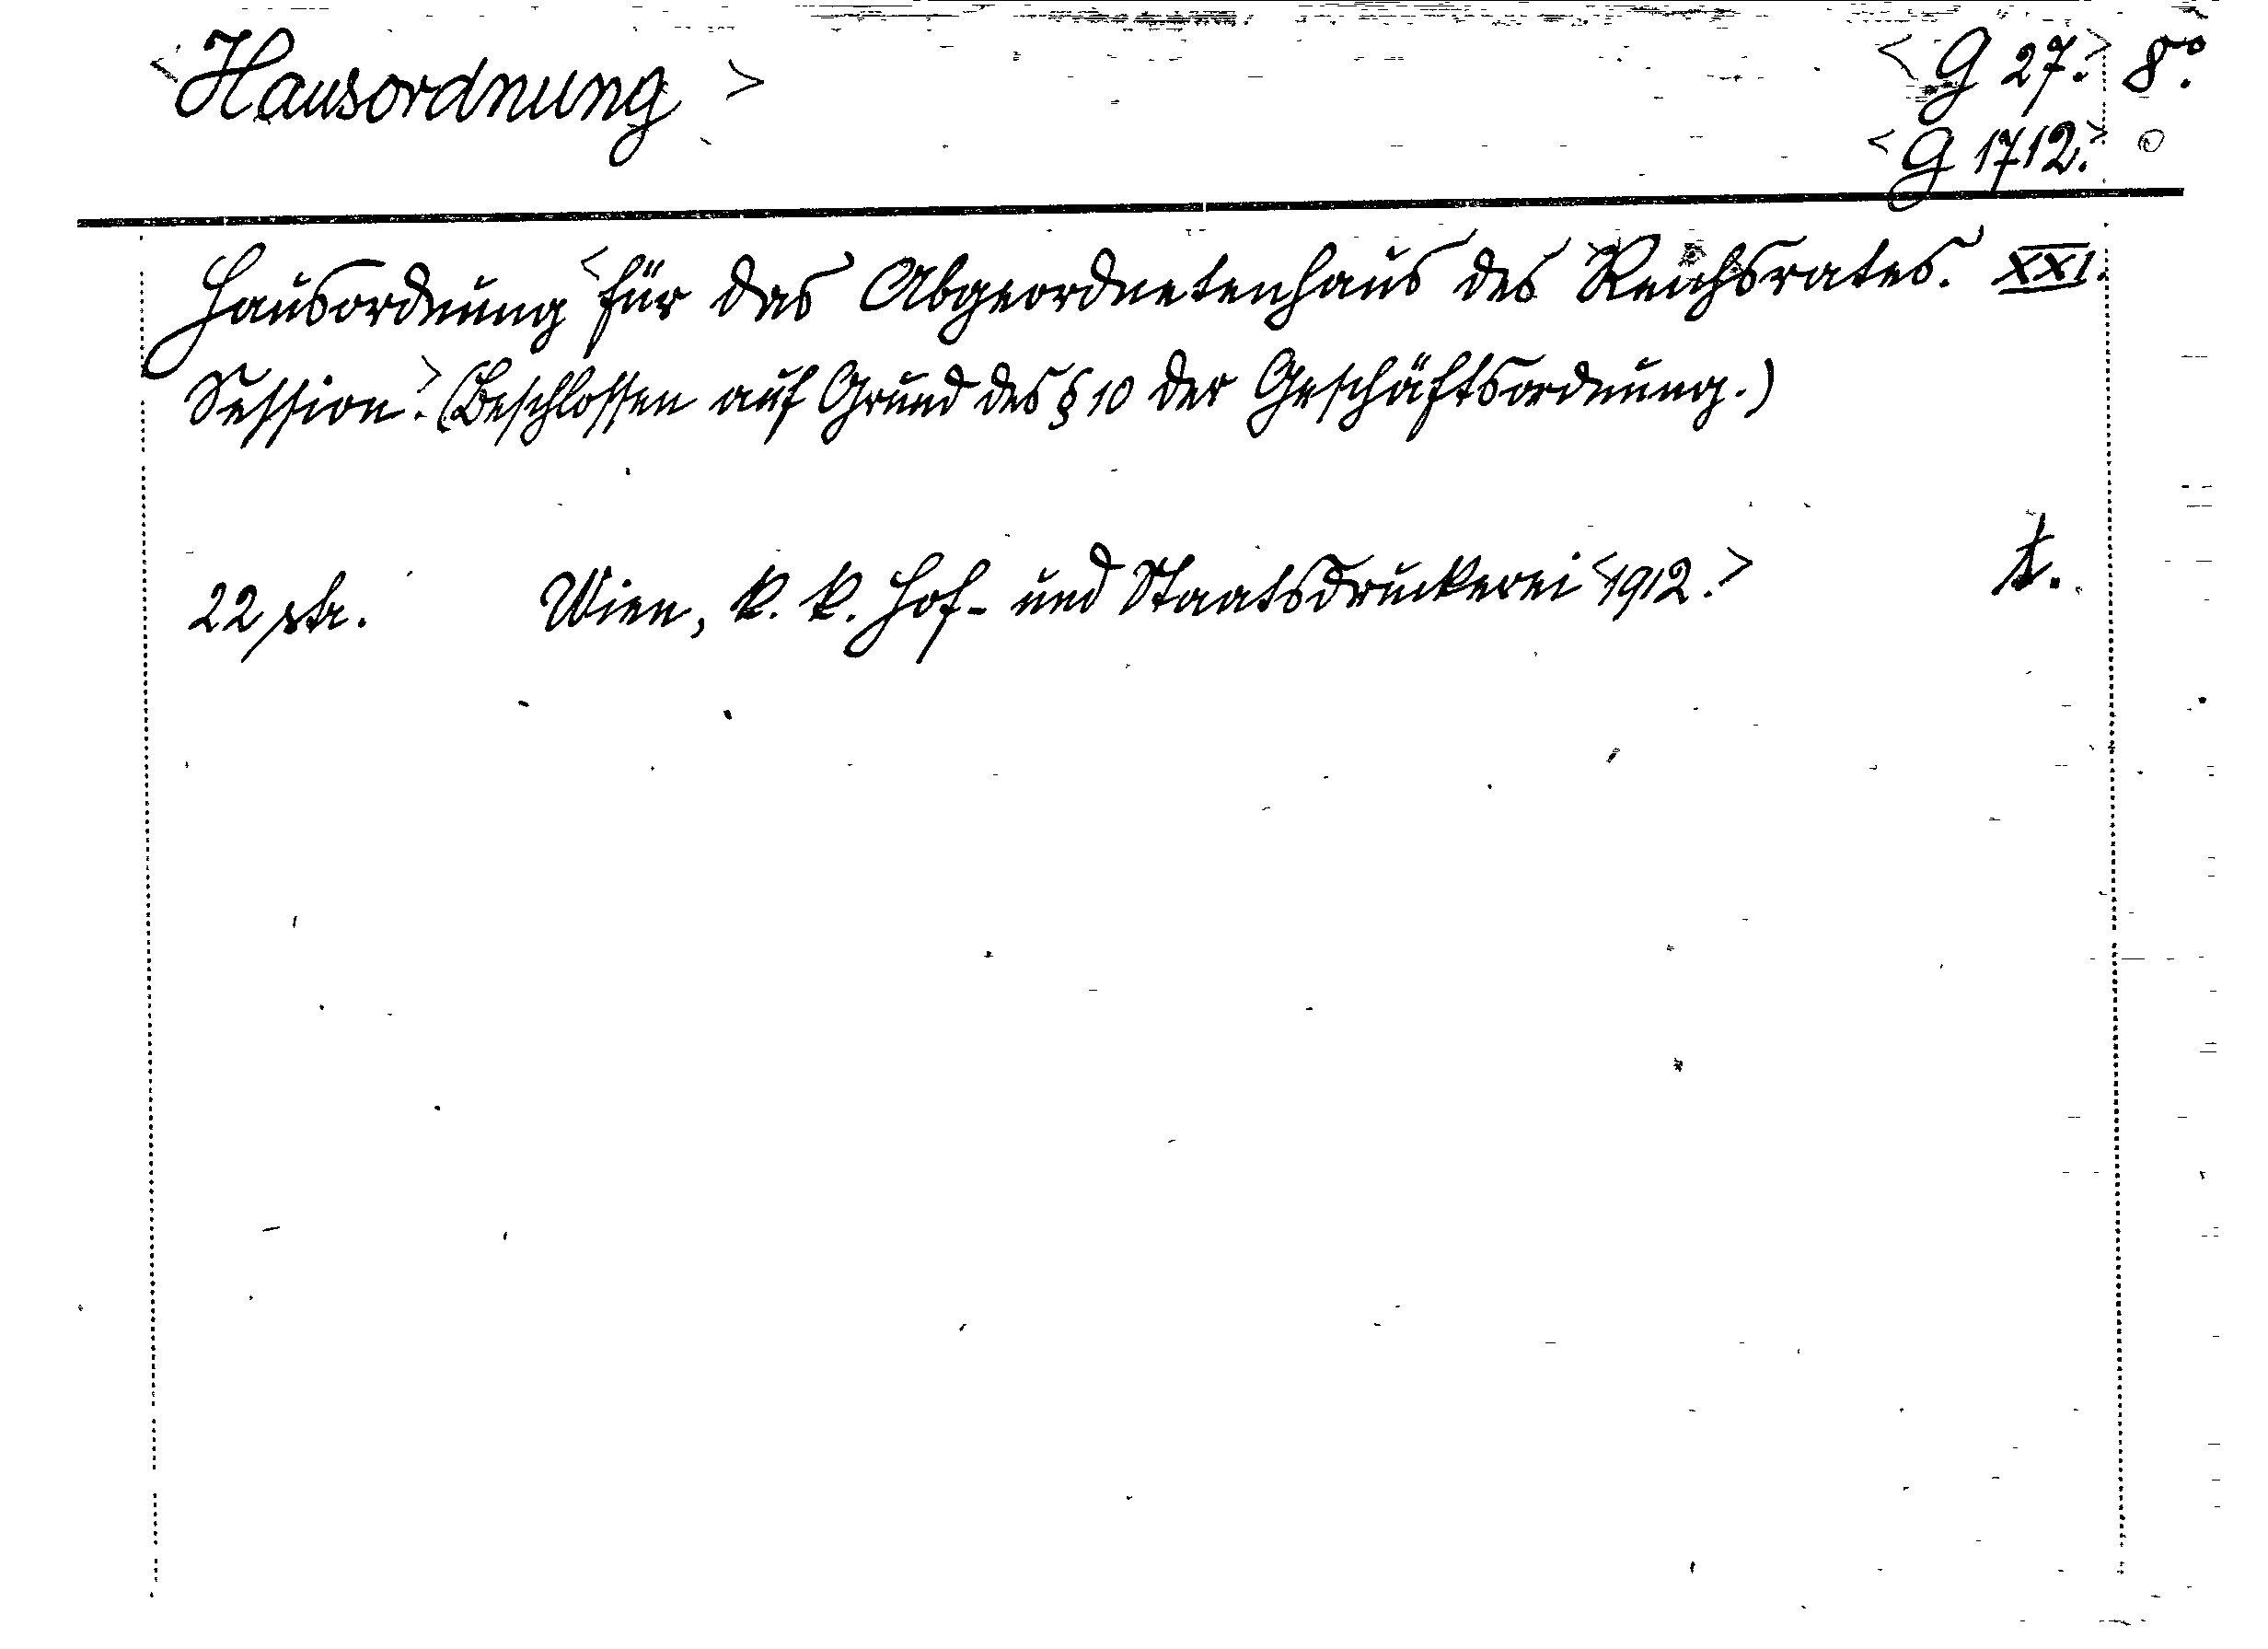 <Hausordnung> <G 27.> 8°.
<G 1712.>
Hausordnung <für das Abgeordnetenhaus des Reichsrates. XXI.
Session.> (Beschlossen auf Grund des § 10 der Geschäftsordnung.)
22 str. Wien, k. k. Hof- und Staatsdruckerei <1912.>